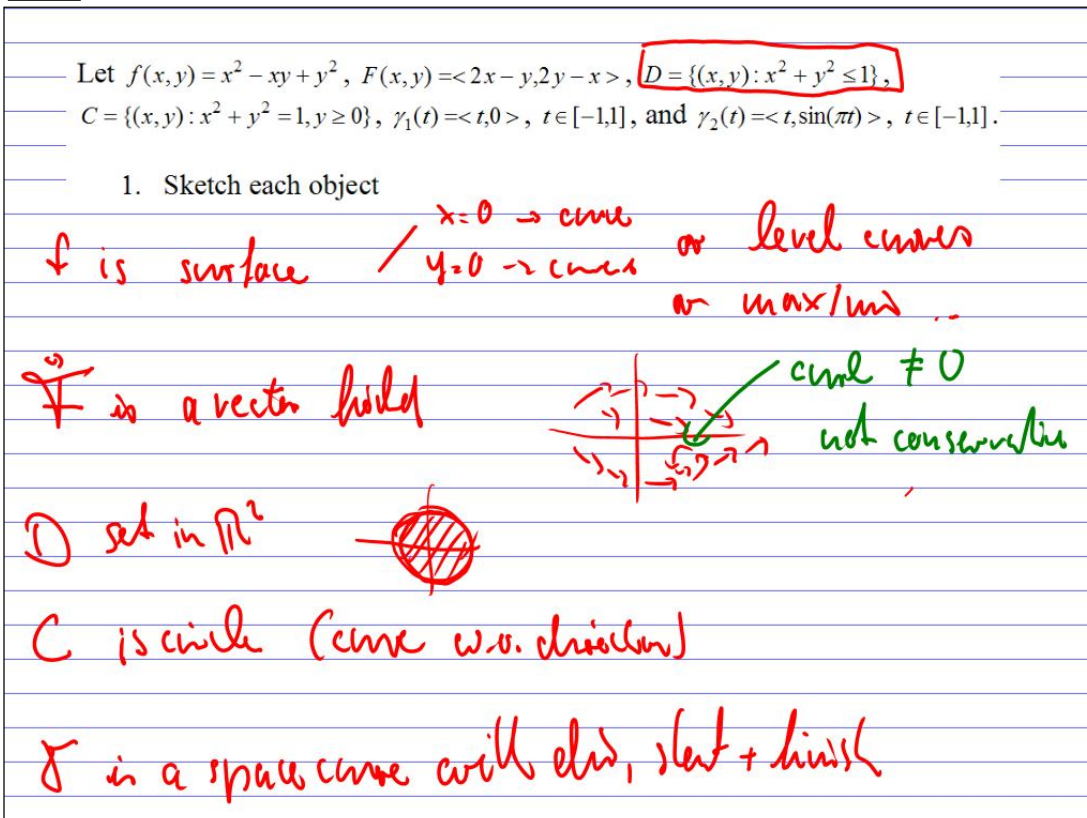 Let f(x, y) = x² − xy + y², F(x, y) =< 2x − y,2y − x >, D = {(x, y) : x² + y² ≤ 1},
C = {(x, y) : x² + y² = 1, y ≥ 0}, γ₁(t) =< t,0 >, t ∈ [−1,1], and γ₂(t) =< t,sin(πt) >, t ∈ [−1,1].
1. Sketch each object
x=0 → curve
f is surface / y=0 → curves or level curves
or max/min ..
F is a vector field
curl ≠ 0
not conservative
D set in ℝ²
C is circle (curve w.o. direction)
γ is a space curve with start + finish